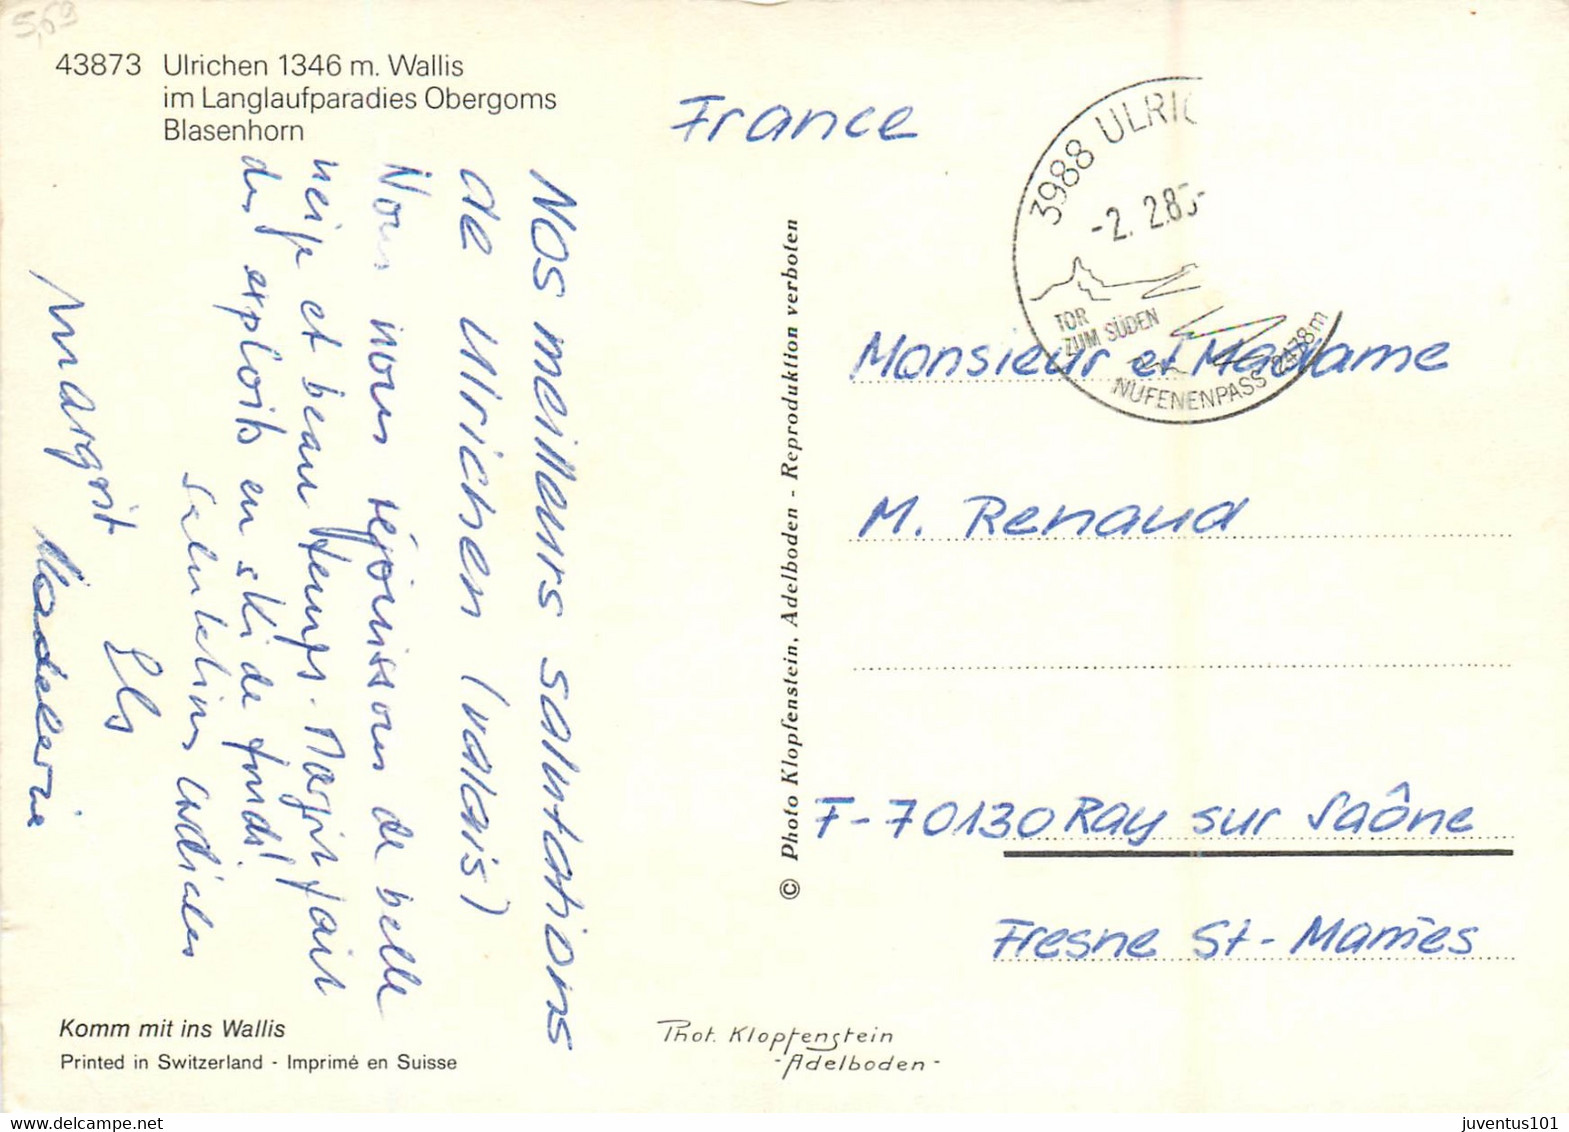 5,69
43873 Ulrichen 1346 m. Wallis
im Langlaufparadies Obergoms
Blasenhorn
Nos meilleurs salutations
de Ulrichen (valais)
Nous nous réjouissons de belle
neige et beau temps. fait
des exploits en ski de fonds!
Salutations cordiales
Margrit Els
Madeleine
Komm mit ins Wallis
Printed in Switzerland - Imprimé en Suisse
© Photo Klopfenstein, Adelboden - Reproduktion verboten
Phot. Klopfenstein
-Adelboden-
France
3988 ULRIC
-2. 2.85-
TOR
ZUM SÜDEN
NUFENENPASS 2478m
Monsieur et Madame
M. Renaud
F-70130 Ray sur Saône
Fresne St-Mamès
juventus101